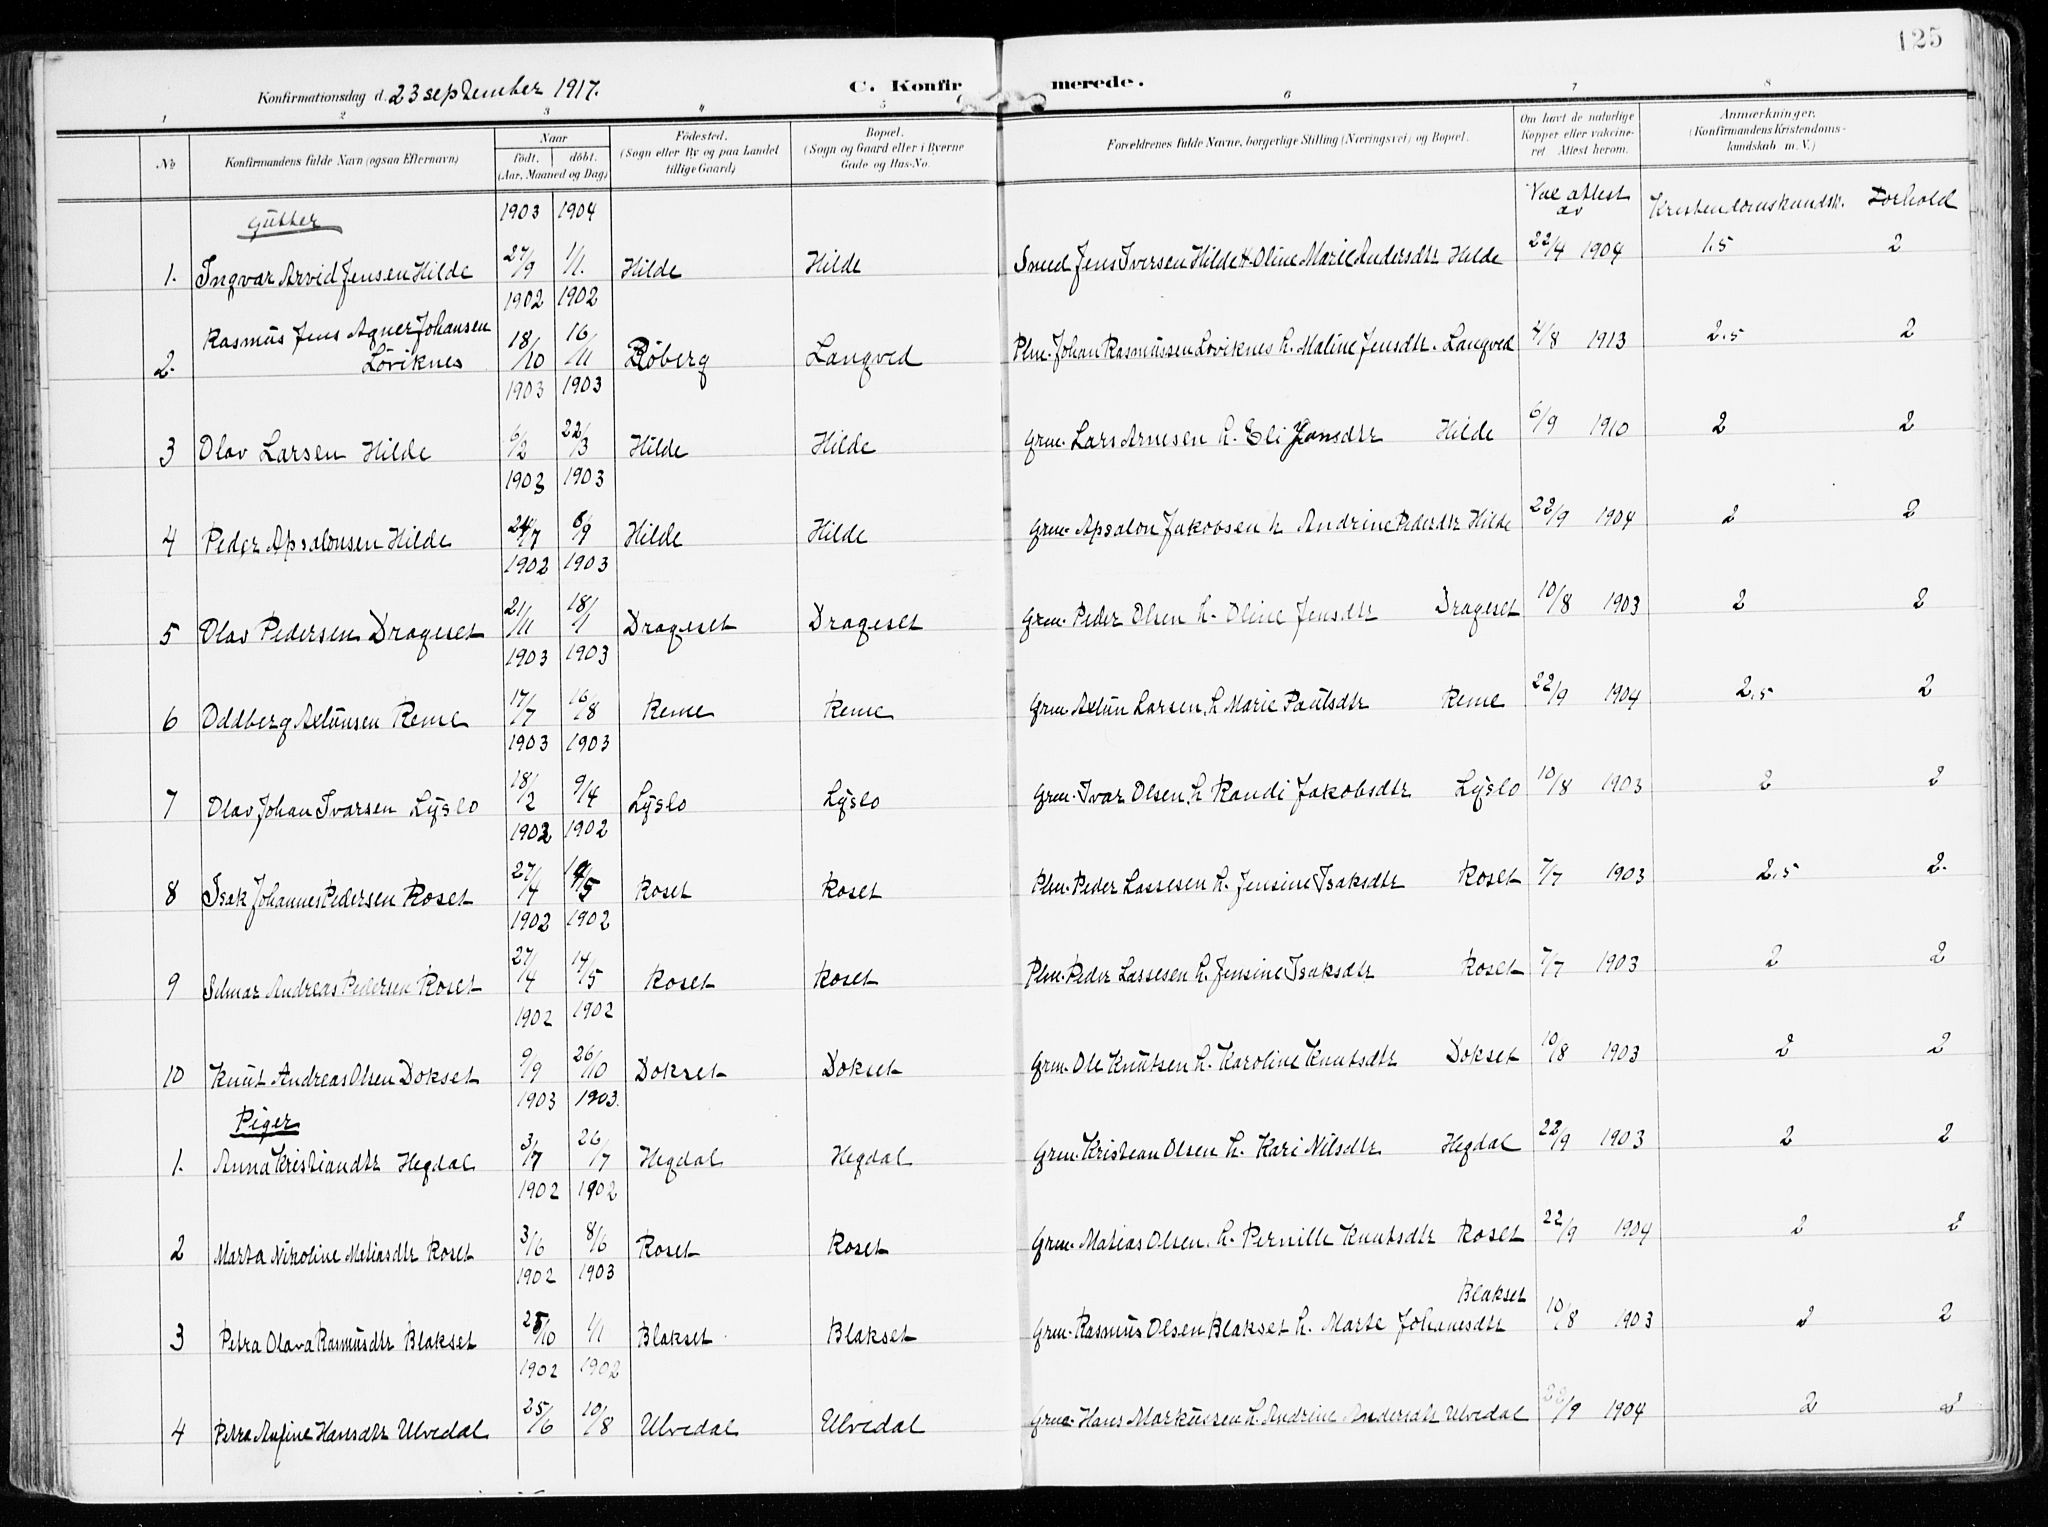 125
Konfirmationsdag d. 23 september 1917. C. Konfirmerede.
1 2 3 4 5 6 7 8
No Konfirmandens fulde Navn (ogsaa Efternavn) Naar født. døbt. (Aar, Maaned og Dag) Fødested. (Sogn eller By og paa Landet tillige Gaard) Bopæl. (Sogn og Gaard eller i Byerne Gade og Hus-No. Forældrenes fulde Navne, borgerlige Stilling (Næringsvei) og Bopæl. Om havt de naturlige Kopper eller vakcineret Attest herom. Anmærkninger. (Konfirmandens Kristendomskundskab m. V.)
Gutter 1903 1904 Vac attest av Kristendomskundsk. Forhold
1. Ingvar Arvid Jensen Hilde 27/9 1/1. Hilde Hilde Smed Jens Iversen Hilde H. Oline Marie Andersdtr Hilde 22/4 1904 1.5 2
1902 1902
2. Rasmus Jens Agner Johansen Løviknes 18/10 16/11 Røberg Langved Plm. Johan Rasmussen Loviknes h. Maline Jensdtr. Langved 4/8 1913 2.5 2
1903 1903
3 Olav Larsen Hilde 6/2 22/3 Hilde Hilde Grm. Lars Arnesen h. Eli Jonsdtr Hilde 6/9 1910 2 2
1903 1903
4 Peder Apsalonsen Hilde 24/7 6/9 Hilde Hilde Grm. Apsalon Jakobsen h Andrine Pedersdtr Hilde 22/9 1904 2 2
1902 1903
5 Olav Pedersen Drageset 21/11 18/1 Drageset Drageset Grm. Peder Olsen h. Oline Jensdtr Drageset 10/8 1903 2 2
1903 1903
6 Oddberg Axlunsen Reme 17/7 16/8 Reme Reme Grm Axlun Larsen, h Marie Paulsdtr Reme 22/9 1904 2.5 2
1903 1903
7 Olav Johan Ivarsen Lyslo 18/2 9/4 Lyslo Lyslo Grm. Ivar Olsen, h Randi Jakobsdtr Lyslo 10/8 1903 2 2
1902 1902
8 Isak Johannes Pedersen Roset 27/4 14/5 Roset Roset Plm. Peder Lassesen h. Jensine Isaksdtr Roset 7/7 1903 2.5 2.
1902 1902
9 Ilmar Andreas Pedersen Roset 27/4 14/5 Roset Roset Plm. Peder Lassesen h. Jensine Isaksdtr Roset 7/7 1903 2 2
1902 1902
10 Knut Andreas Olsen Dokset 9/9 26/10 Dokset Dokset Grm. Ole Knutsen h. Karoline Knutsdtr Dokset 10/8 1903 2 2
Piger 1903 1903.
1. Anna Kristiandtr Hegdal 3/7 26/7 Hegdal Hegdal Grm. Kristian Olsen h. Kari Nilsdtr Hegdal 22/9 1903 2 2
1902 1902
2 Marta Nikoline Matiasdtr Roset 3/6 8/6 Roset Roset Grm. Matias Olsen. h. Pernille Knutsdtr Roset 22/9 1904 2 2
1902 1903
3 Petra Olava Rasmusdtr Blakset 25/10 1/1 Blakset Blakset Grm. Rasmus Olsen Blakset h. Marte Johanesdtr Blakset 10/8 1903 2 2
1902 1902
4 Petra Anfine Hansdtr Ulvedal 25/6 10/8 Ulvedal Ulvedal Grm. Hans Markussen h. Andrine Andersdtr Ulvedal 22/9 1904 2 2